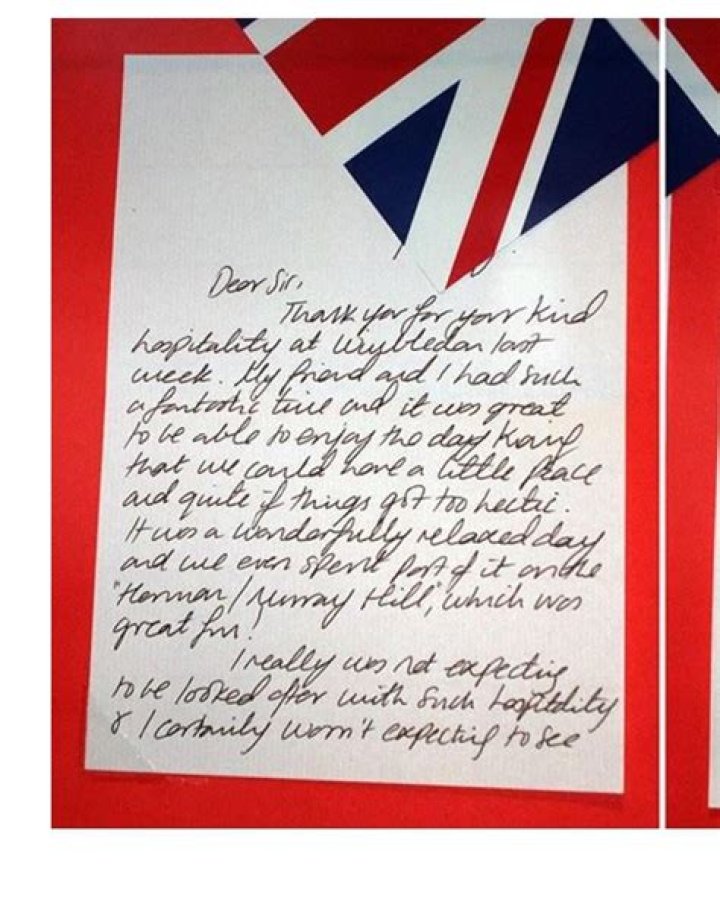 Dear Sir,
Thank you for your kind
hospitality at Wimbledon last
week. My friend and I had such
a fantastic time and it was great
to be able to enjoy the day knowing
that we could have a little peace
and quite if things got too hectic.
It was a wonderfully relaxed day
and we even spent part of it on the
"Henman / Murray Hill", which was
great fun!
I really was not expecting
to be looked after with such hospitality
& I certainly wasn't expecting to see